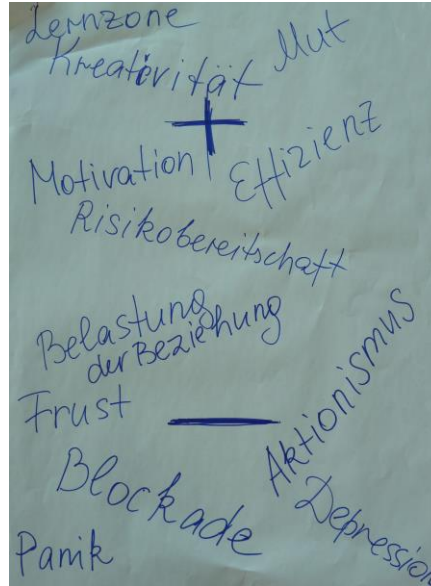 Lernzone
Kreativität Mut
+
Motivation Effizienz
Risikobereitschaft
Belastung
der Beziehung
Frust
—
Aktionismus
Blockade
Depression
Panik